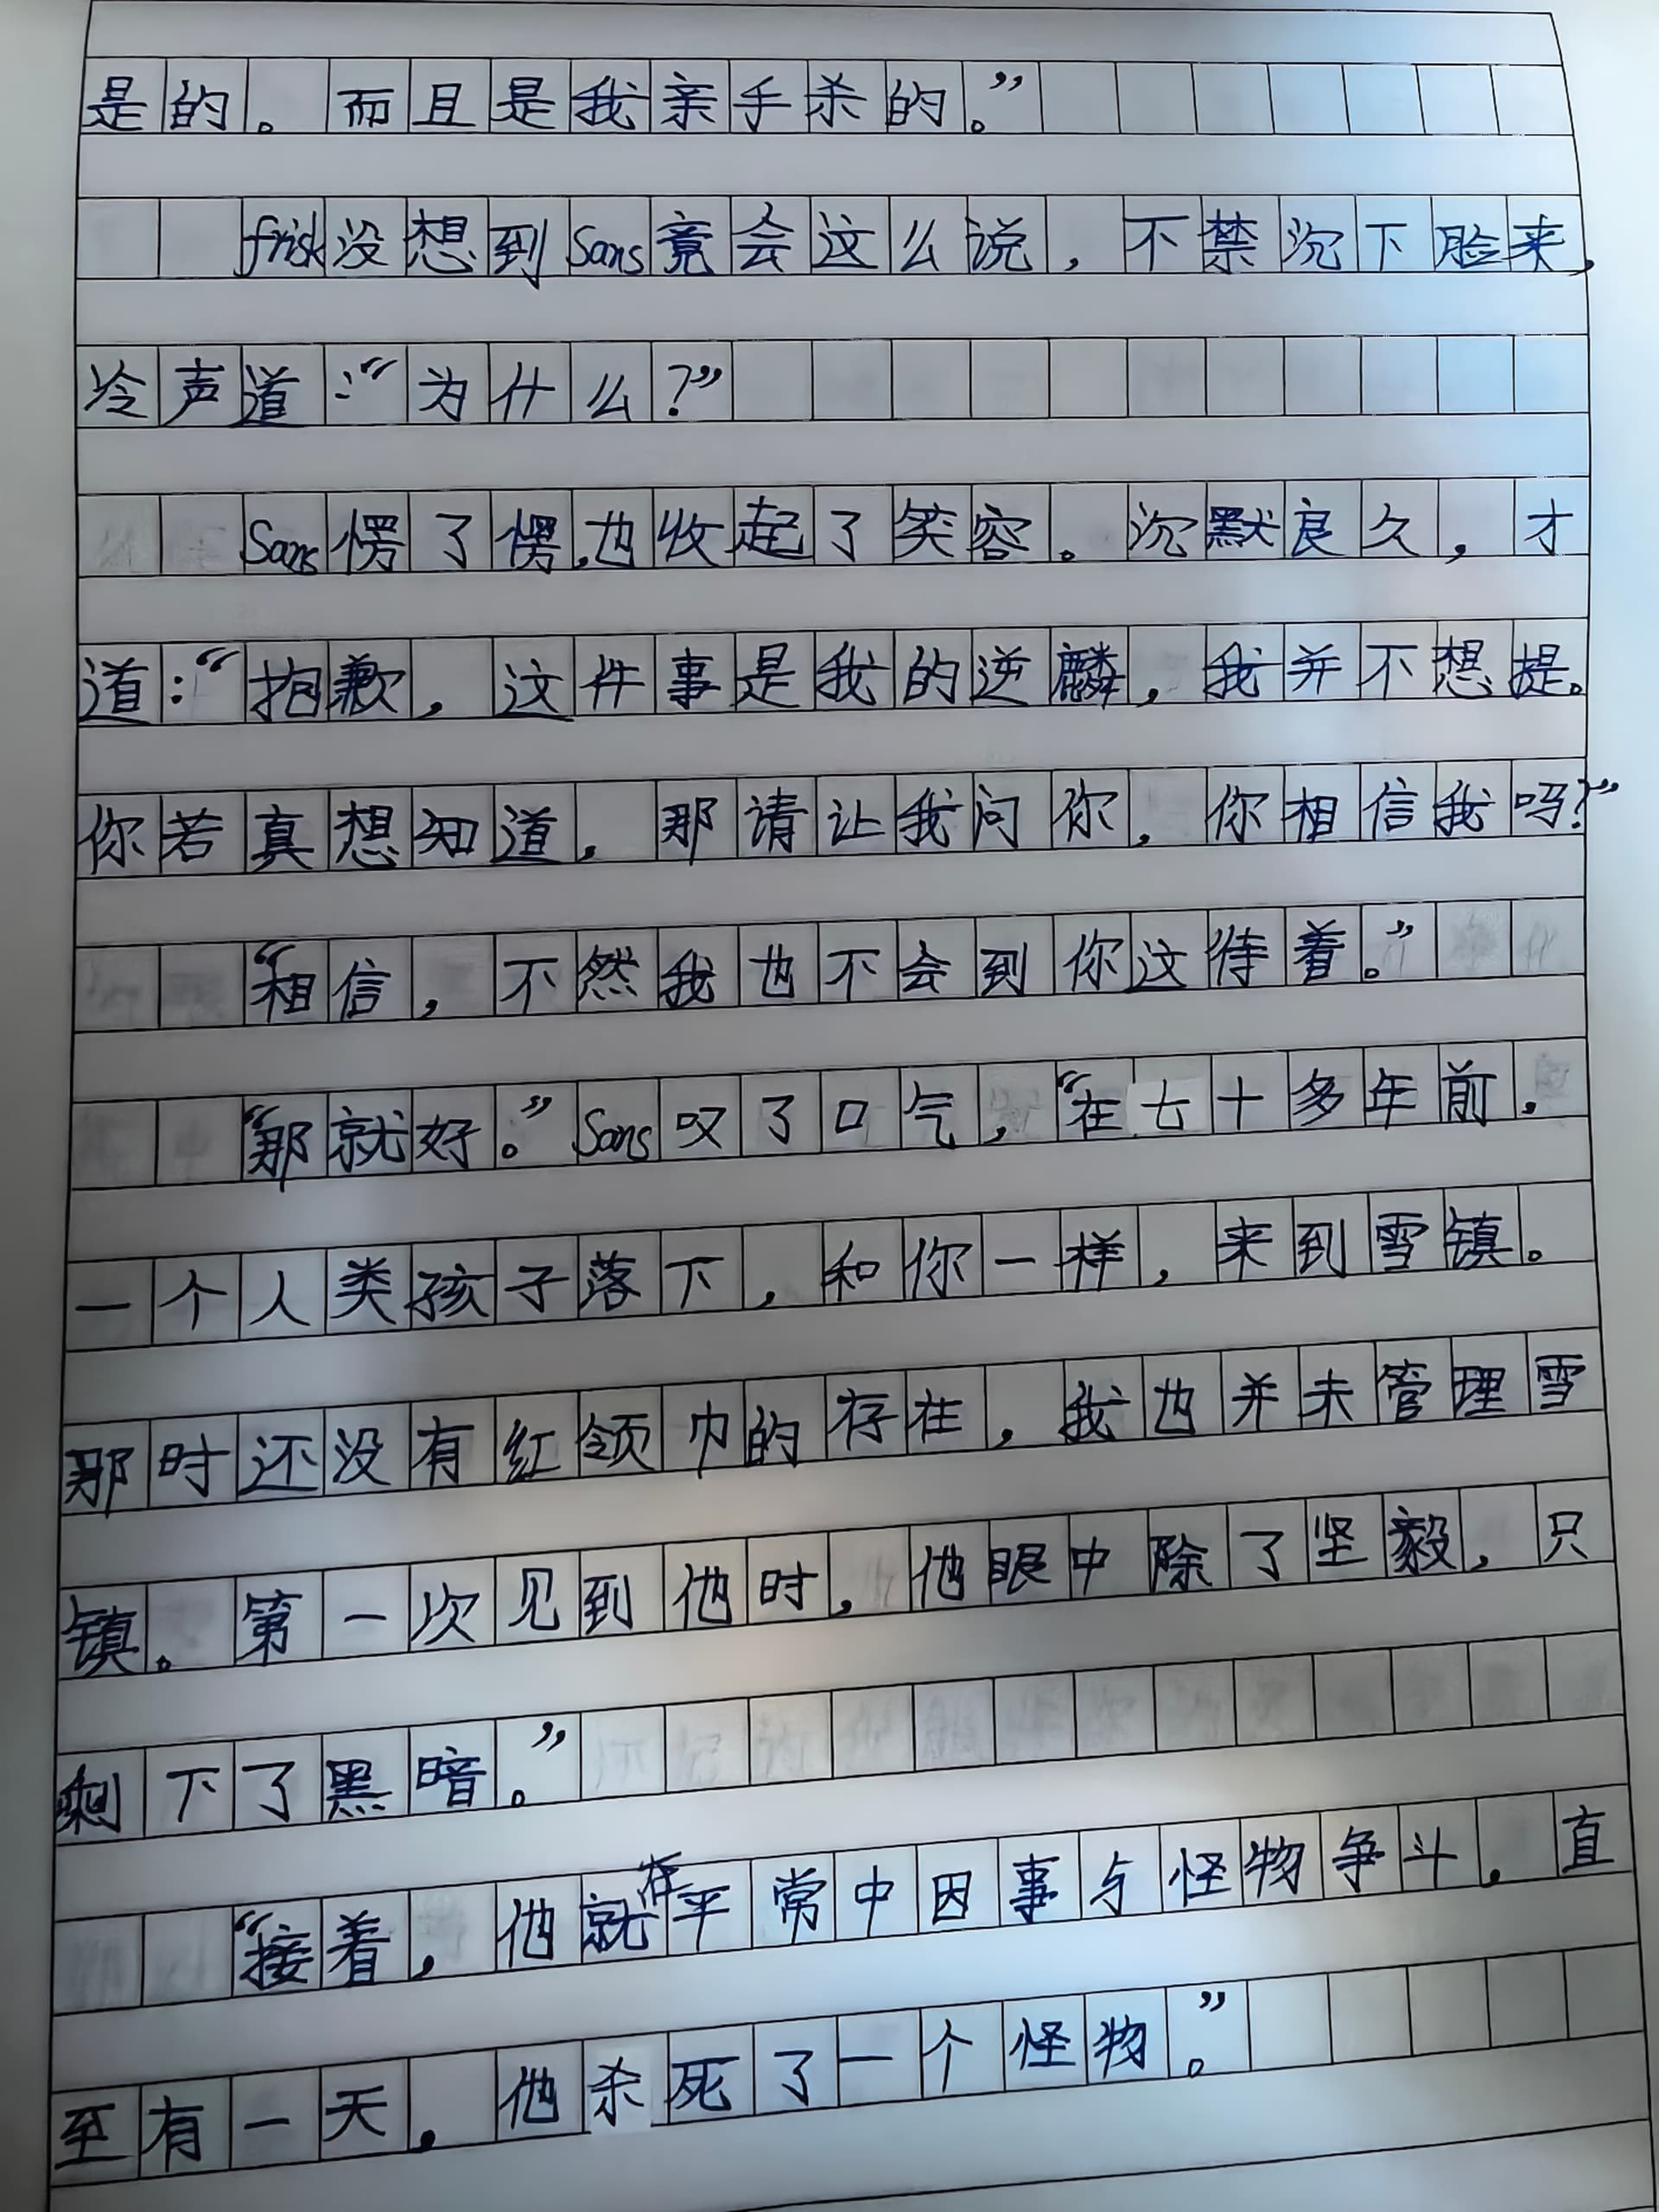 是的。而且是我亲手杀的。”
frisk没想到Sans竟会这么说，不禁沉下脸来，
冷声道：“为什么？”
Sans愣了愣，也收起了笑容。沉默良久，才
道：“抱歉，这件事是我的逆麟，我并不想提。
你若真想知道，那请让我问你，你相信我吗？”
“相信，不然我也不会到你这待着。”
“那就好。”Sans叹了口气，“在七十多年前，
一个人类孩子落下，和你一样，来到雪镇。
那时还没有红领巾的存在，我也并未管理雪
镇。第一次见到他时，他眼中除了坚毅，只
剩下了黑暗。”
“接着，他就在平常中因事与怪物争斗，直
至有一天，他杀死了一个怪物。”